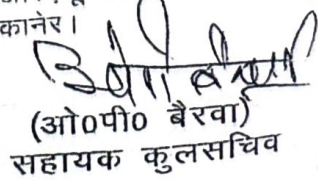 कानेर।
(ओ०पी० बैरवा)
सहायक कुलसचिव